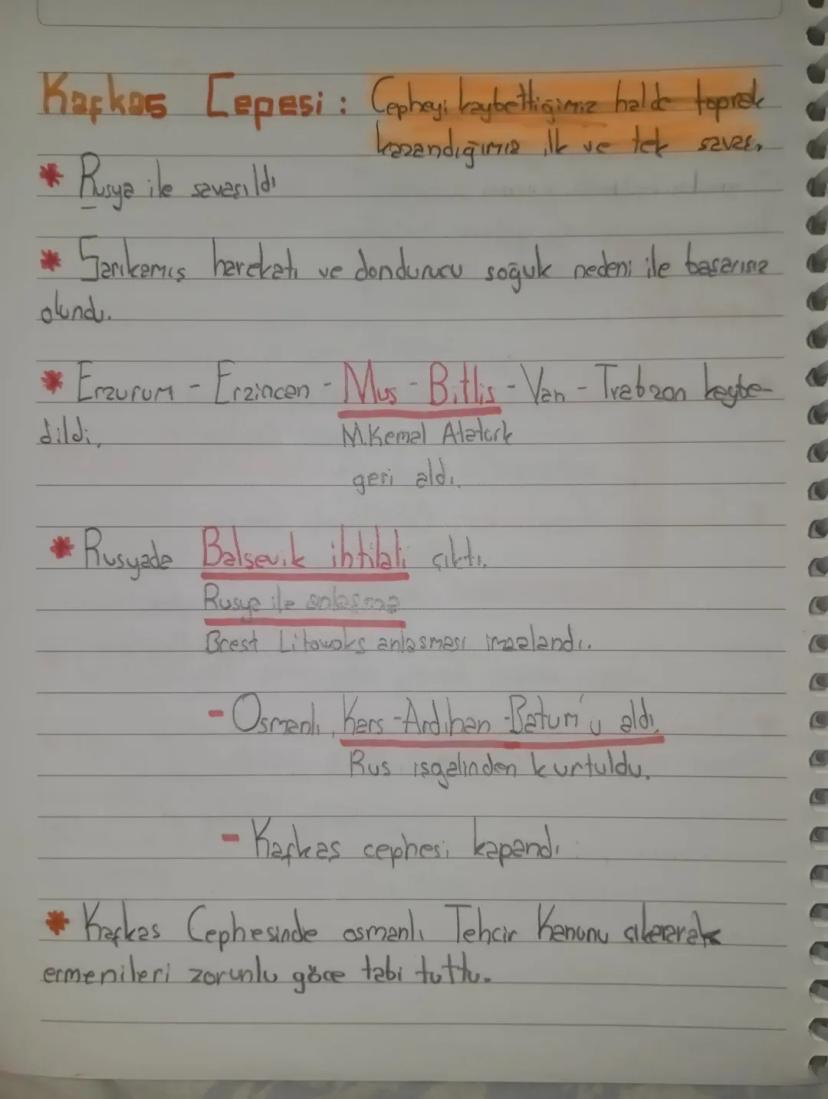 Kafkas Cepesi: Cepheyi kaybettiğimiz halde toprak
kazandığımız ilk ve tek savaş.
* Rusya ile savaşıldı
* Sarıkamış harekatı ve dondurucu soğuk nedeni ile başarısız
olundu.
* Erzurum - Erzincan - Mus - Bitlis - Van - Trabzon kaybe-
dildi.
M.Kemal Atatürk
geri aldı.
* Rusyada Balsevik ihtilali çıktı.
Rusya ile anlaşma
Brest Litowoks anlasması imzalandı.
- Osmanlı, Kars-Ardıhan-Batum'u aldı.
Rus işgalinden kurtuldu.
- Kafkas cephesi kapandı
* Kafkas Cephesinde osmanlı Tehcir Kanunu çıkararak
ermenileri zorunlu göçe tabi tuttu.